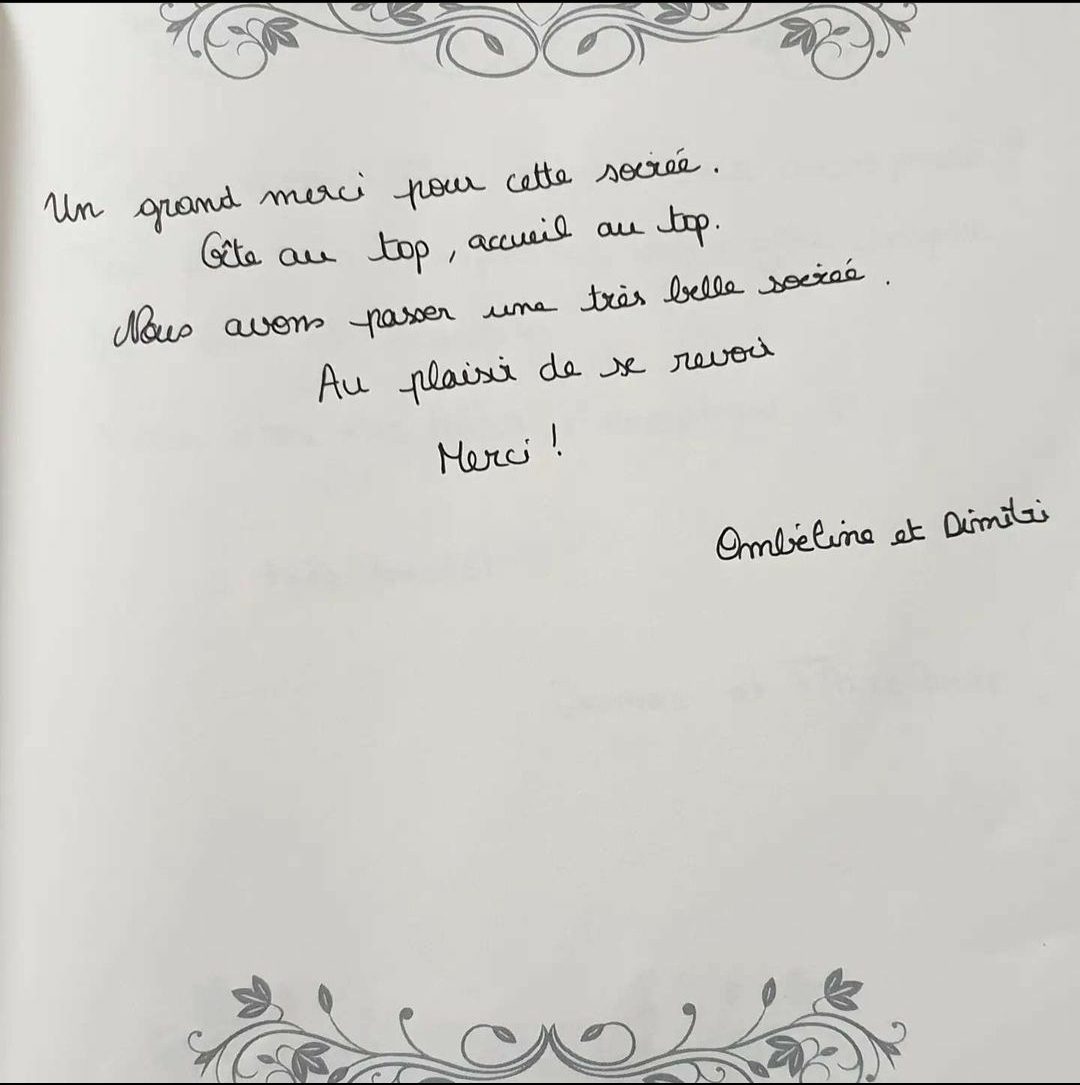 Un grand merci pour cette soirée.
Gîte au top, accueil au top.
Nous avons passer une très belle soirée.
Au plaisir de se revoir
Merci !
Ombéline et Dimitri